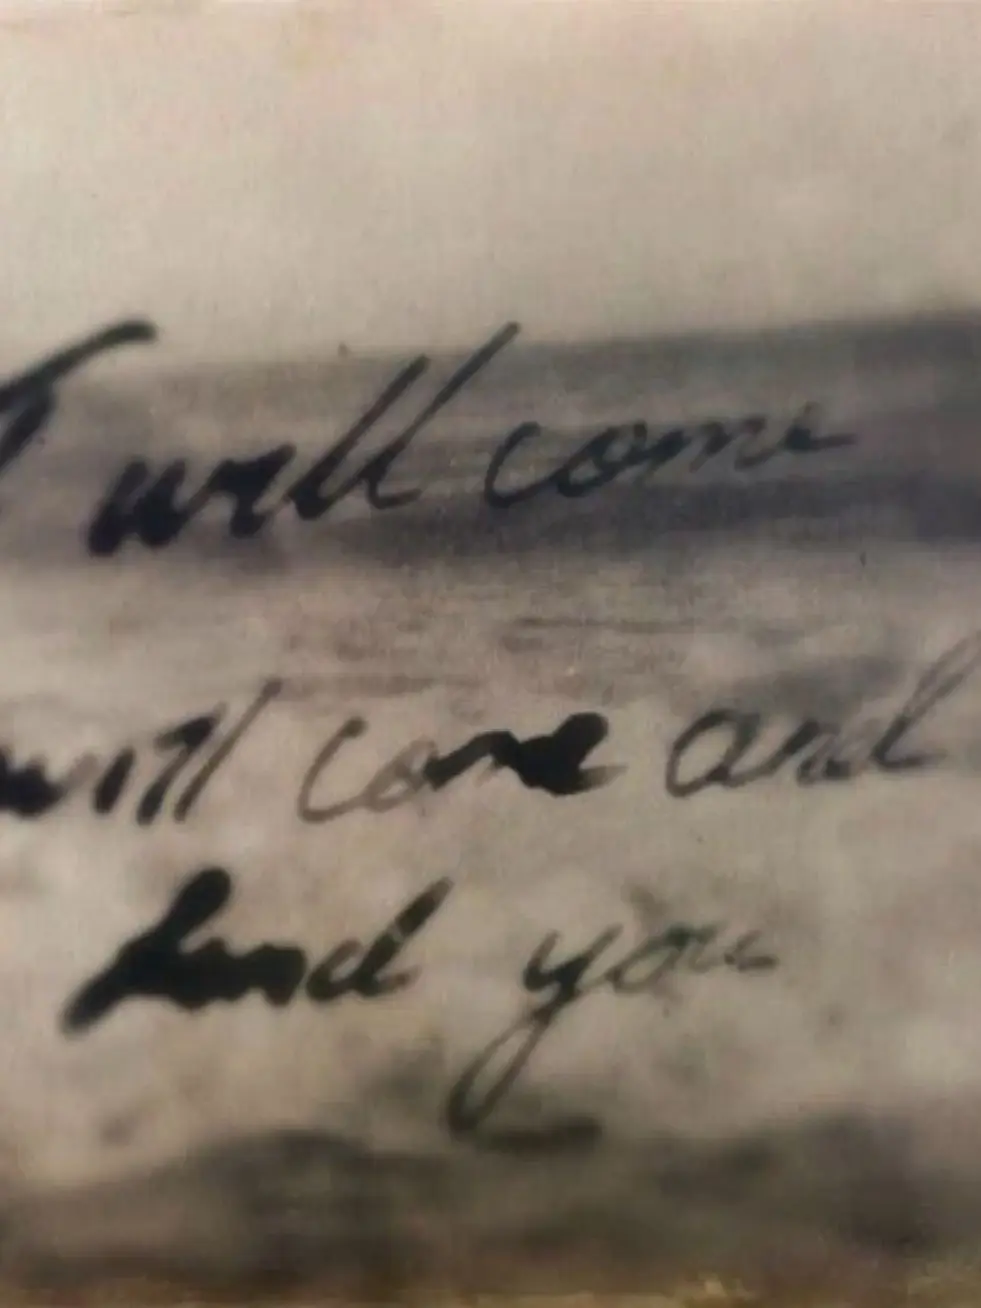 I will come
will come and
find you